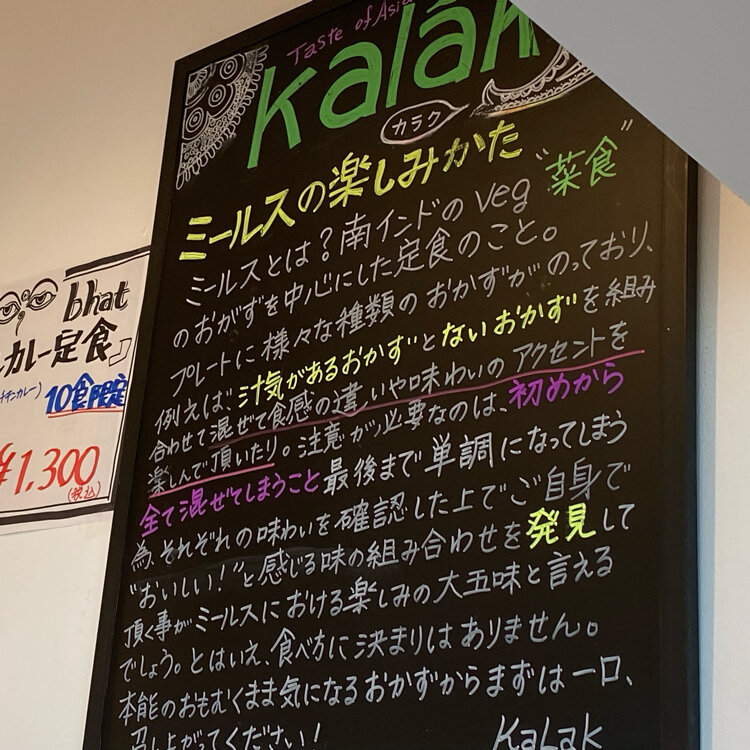 Taste of Asia
Kalak
カラク
ミールスの楽しみかた
ミールスとは?南インドのveg"菜食"
のおかずを中心にした定食のこと。
プレートに様々な種類のおかずがのっており、
例えば、汁気があるおかずとないおかずを組み
合わせて混ぜて食感の違いや味わいのアクセントを
楽しんで頂いたり。注意が必要なのは、初めから
全て混ぜてしまうこと最後まで単調になってしまう
為、それぞれの味わいを確認した上でご自身で
"おいしい!"と感じる味の組み合わせを発見して
頂く事がミールスにおける楽しみの大五味と言える
でしょう。とはいえ、食べ方に決まりはありません。
本能のおもむくまま気になるおかずからまずは一口、
召し上がってください!
KaLak
bhat
カレー定食』
チキンカレー)
10食限定
¥1,300
(税込)